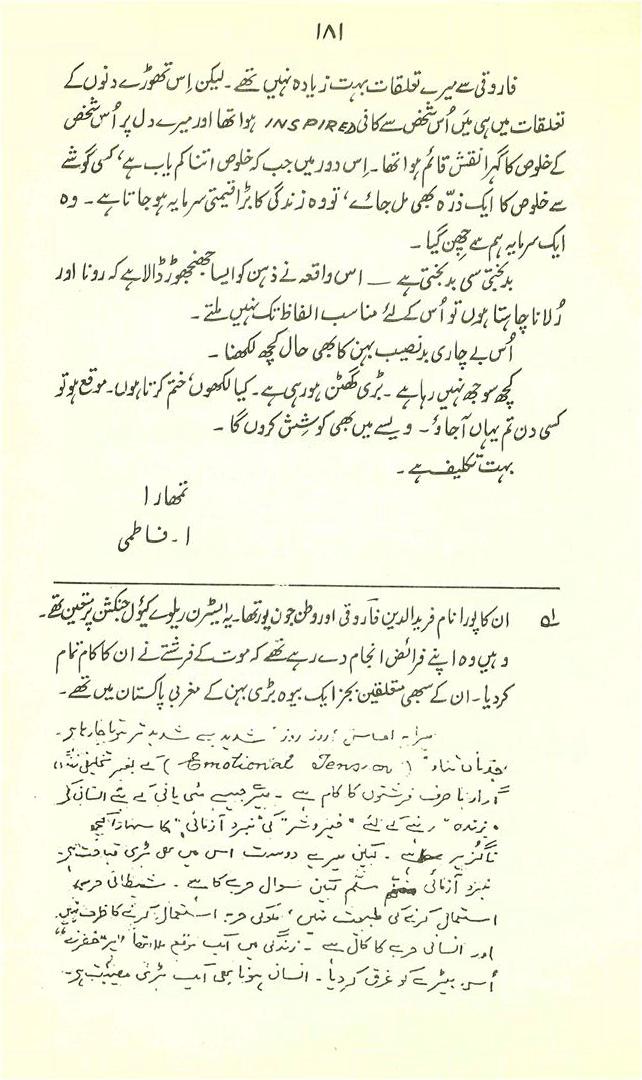 ۱۸۱
فاروقی سے میرے تعلقات بہت زیادہ نہیں تھے۔ لیکن اِس تھوڑے دنوں کے
تعلقات میں ہی میں اُس شخص سے کافی INSPIRED ہوا تھا اور میرے دل پر اُس شخص
کے خلوص کا گہرا نقش قائم ہوا تھا۔ اِس دور میں جب کہ خلوص اتنا کم یاب ہے، کسی گوشے
سے خلوص کا ایک ذرّہ بھی مل جائے، تو وہ زندگی کا بڑا قیمتی سرمایہ ہو جاتا ہے۔ وہ
ایک سرمایہ ہم سے چھِن گیا۔
بدبختی سی بدبختی ہے — اس واقعہ نے ذہن کو ایسا جھنجھوڑ ڈالا ہے کہ رونا اور
رُلانا چاہتا ہوں تو اُس کے لئے مناسب الفاظ تک نہیں ملتے۔
اُس بے چاری بدنصیب بہن کا بھی حال کچھ لکھنا۔
کچھ سوجھ نہیں رہا ہے۔ بڑی گھٹن ہو رہی ہے۔ کیا لکھوں، ختم کرتا ہوں۔ موقع ہو تو
کسی دن تم یہاں آجاؤ۔ ویسے میں بھی کوشِش کروں گا۔
بہت تکلیف ہے۔
تمھارا
ا۔ فاطمی
۱؎ ان کا پورا نام فریدالدین فاروقی اور وطن جون پور تھا۔ یہ ایسٹرن ریلوے کیُول جنکشن پر متعین تھے۔
وہیں وہ اپنے فرائض انجام دے رہے تھے کہ موت کے فرشتے نے ان کا کام تمام
کر دیا۔ ان کے سبھی متعلقین بجز ایک بیوہ بڑی بہن کے مغربی پاکستان میں تھے۔
میرا یہ احساس روز روز شدید سے شدید تر ہوتا جا رہا ہے۔
جذباتی تناؤ (Emotional Tension) کے بغیر تخلیقی
گزارنا صرف فرشتوں کا کام ہے۔ جیسے مٹی پانی کے لئے انسان کی
"زندہ" رہنے کے لئے "خیر و شر" کی "نبرد آزمائی" کا سہارا
ناگزیر ہے۔ لیکن میرے دوست اس میں بھی بڑی قباحت ہے۔
نبرد آزمائی مسلّم لیکن سوال حربے کا ہے۔ شیطانی حربہ
استعمال کرنے کی طبیعت نہیں، ملکوتی حربہ استعمال کرنے کا ظرف نہیں
اور انسانی حربے کا کال ہے۔ زندگی میں ایک موقع ملا تھا
اُس بیڑے کو غرق کر دیا۔ انسان ہونا بھی ایک بڑی مصیبت ہے۔